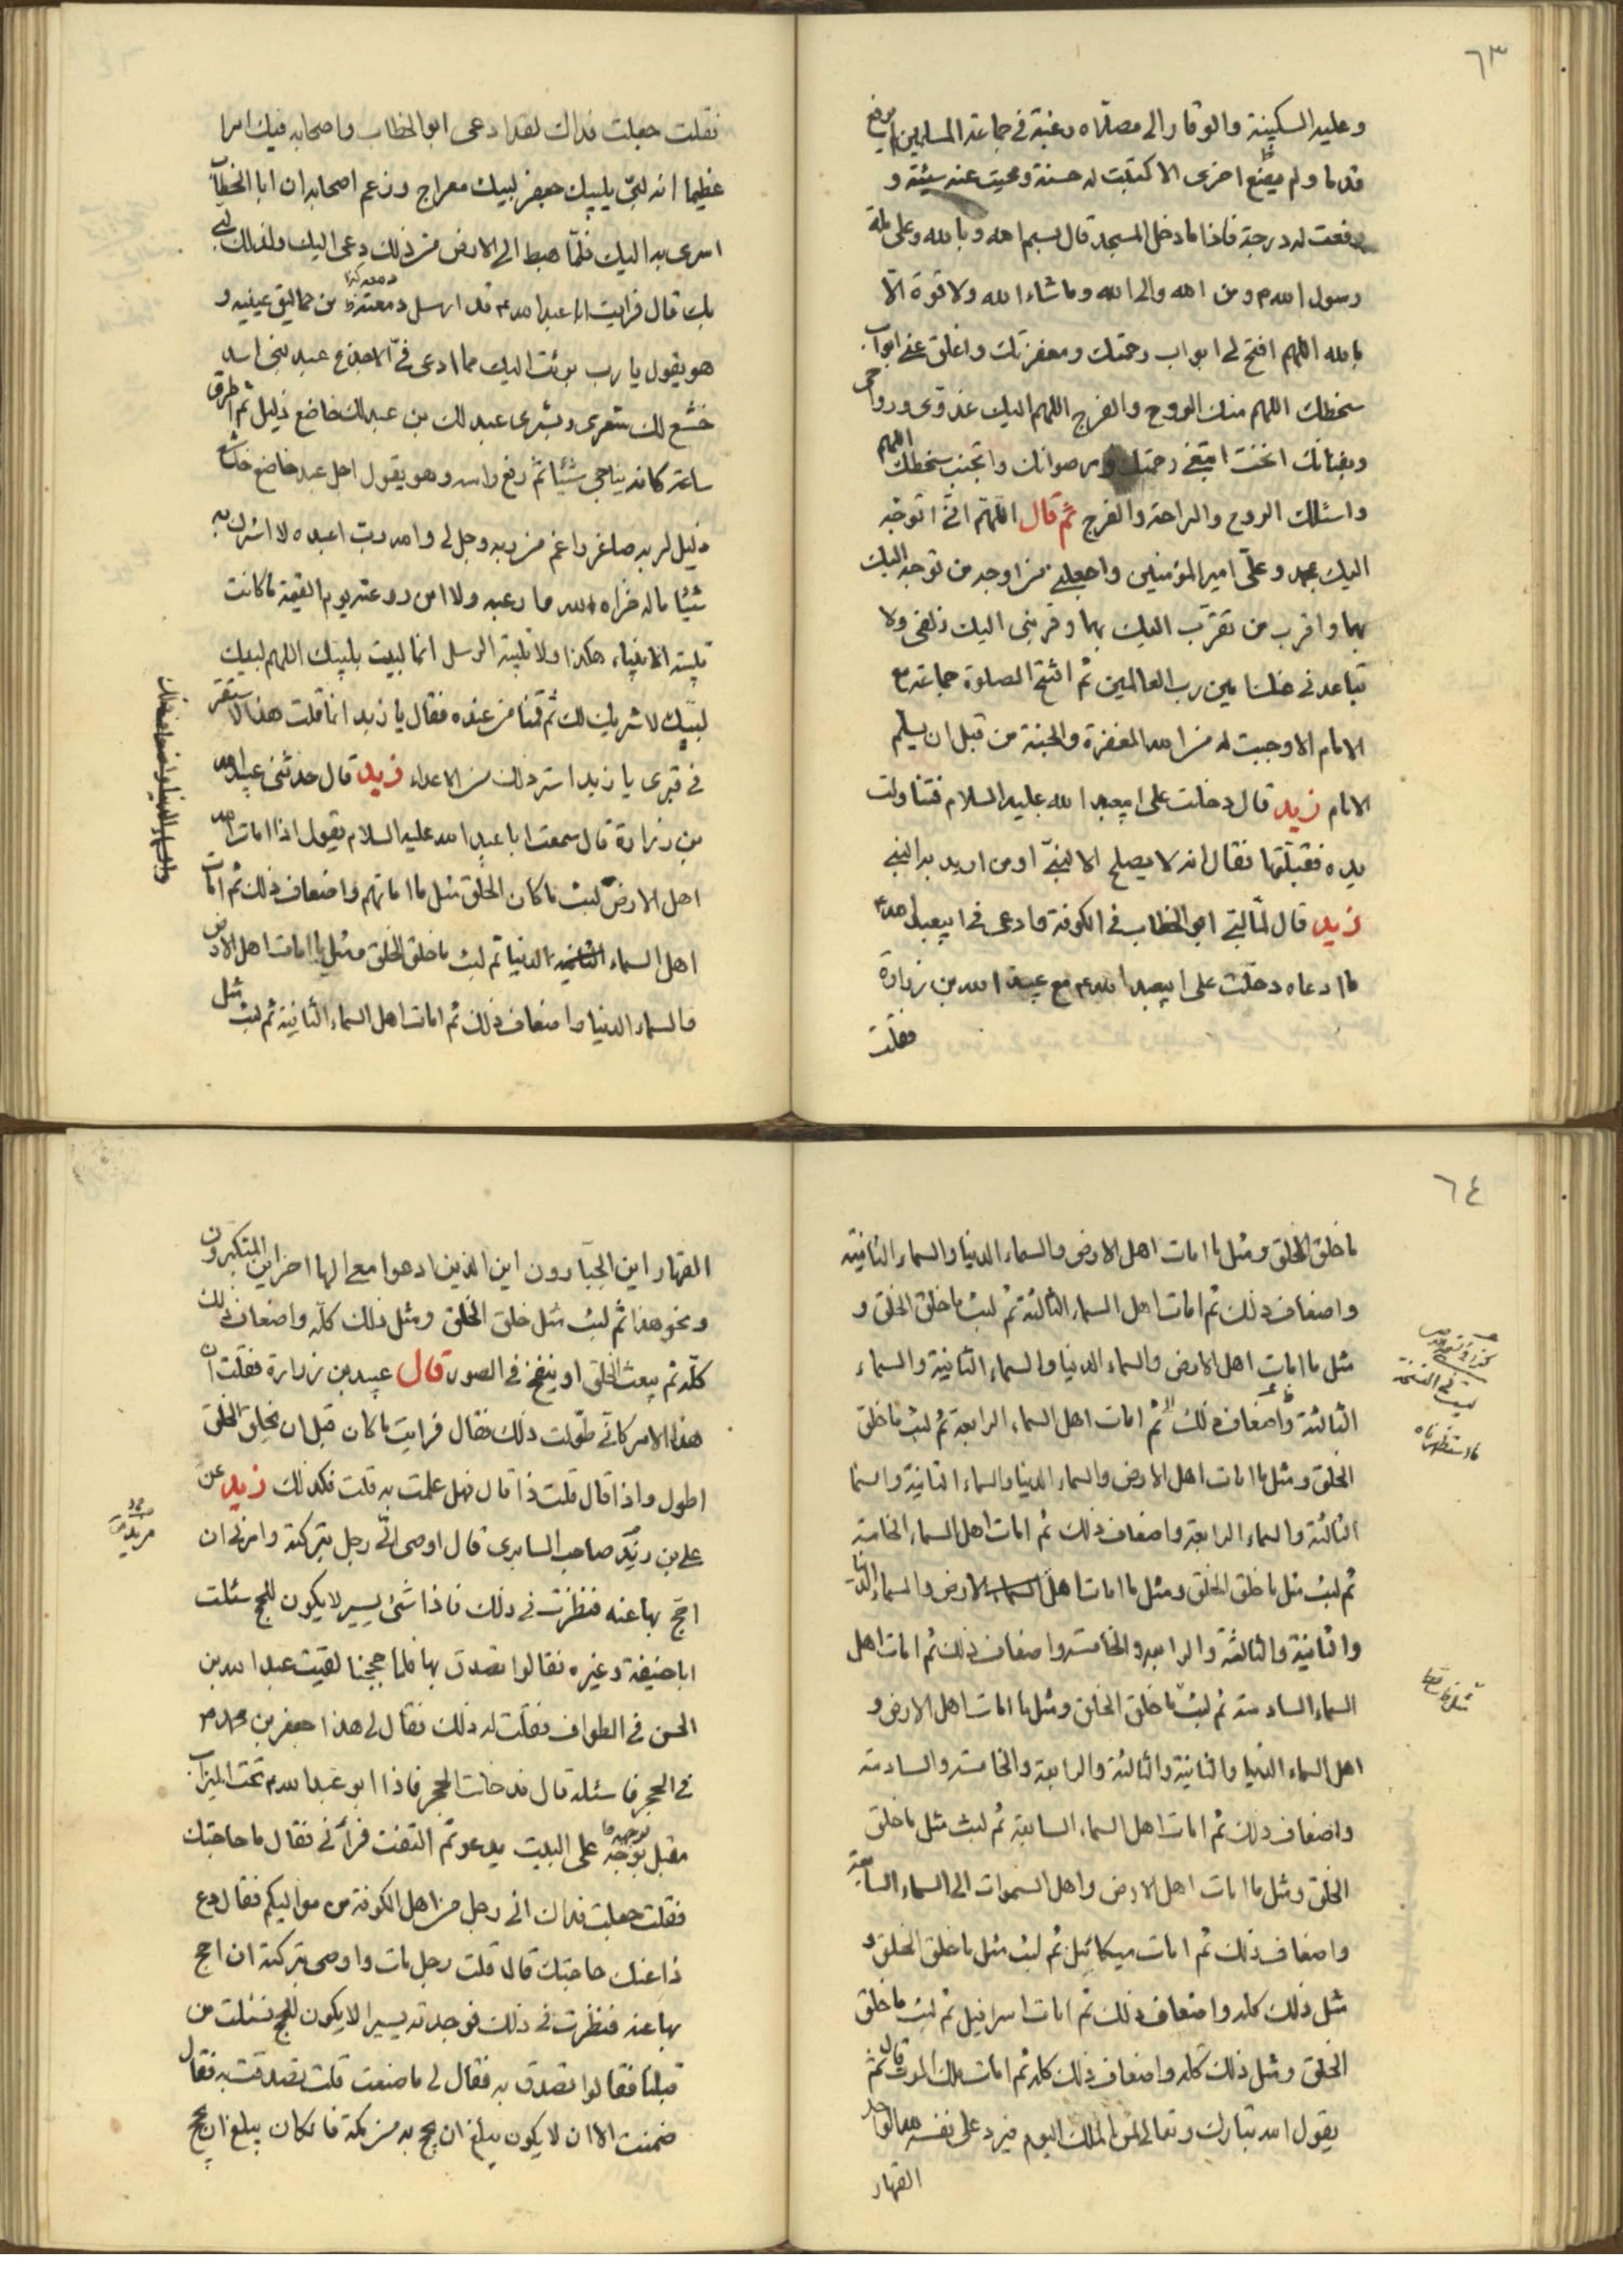 ٦٣
وعليه السكينة والوقار الى مصلاه رغبة في جماعة المسلمين لم يرفع
قدما ولم يضع اخرى الا كتبت له حسنة ومحيت عنه سيئة و
رفعت له درجة فاذا ما دخل المسجد قال بسم الله وبالله وعلى ملة
رسول الله ص ومن الله والى الله وما شاء الله ولا قوة الا
بالله اللهم افتح لي ابواب رحمتك ومغفرتك واغلق عني ابواب
سخطك اللهم منك الروح والفرج اللهم اليك غدوي ورواحي
وبفنائك انخت ابتغي رحمتك ورضوانك واتجنب سخطك اللهم
واسئلك الروح والراحة والفرج ثم قال اللهم اني اتوجه
اليك بمحمد وعلي امير المؤمنين واجعلني من اوجه من توجه اليك
بهما واقرب من تقرب اليك بهما وقربني اليك زلفى ولا
تباعدني عنك امين رب العالمين ثم افتتح الصلوة جماعة مع
الامام الا وجبت له من الله المغفرة والجنة من قبل ان يسلم
الامام زيد قال دخلت على ابيعبد الله عليه السلام فتناولت
يده فقبلتها فقال انه لا يصلح الا لنبي او من اريد به النبي
زيد قال لما لبى ابو الخطاب في الكوفة وادعى في ابيعبد الله ع
ما ادعاه دخلت على ابيعبد الله ع مع عبيد الله بن زرارة
فقلت
فقلت جعلت فداك لقد ادعى ابو الخطاب واصحابه فيك امرا
عظيما انه لبى بلبيك جعفر لبيك معراج وزعم اصحابه ان ابا الخطاب
اسرى به اليك فلما هبط الى الارض من ذلك دعى اليك ولذلك لبى
بك قال فرايت ابا عبد الله ع قد ارسل دمعته من حماليق عينيه و
دمعه كذا
هو يقول يا رب برئت اليك مما ادعى في الاجدع عبد بني اسد
خشع لك شعرى وبشرى عبد لك بن عبد لك خاضع ذليل ثم اطرق
ساعة كانه يناجي شيئا ثم رفع راسه وهو يقول اجل عبد خاضع خاشع
ذليل لربه صاغر راغم من ربه وجل لي والله رب اعبده لا اشرك به
شيئا ما له خزاه الله وارعبه ولا امن روعته يوم القيمة ما كانت
تلبية الانبياء هكذا ولا تلبية الرسل انما لبيت بلبيك اللهم لبيك
لبيك لا شريك لك ثم قمنا من عنده فقال يا زيد انما قلت هذا لاستقر
في قبري يا زيد استر ذلك من الاعداء زيد قال حدثني عبيد الله
بن زرارة قال سمعت ابا عبد الله عليه السلام يقول اذا امات الله
اهل الارض لبث ما كان الخلق مثل ما اماتهم واضعاف ذلك ثم امات
اهل السماء الدنيا ثم لبث ما خلق الخلق ومثل ما امات اهل الارض
والسماء الدنيا واضعاف ذلك ثم امات اهل السماء الثانية ثم لبث مثل
٦٤
ما خلق الخلق ومثل ما امات اهل الارض والسماء الدنيا والسماء الثانية
واضعاف ذلك ثم امات اهل السماء الثالثة ثم لبث ما خلق الخلق و
مثل ما امات اهل الارض والسماء الدنيا والسماء الثانية والسماء
الثالثة واضعاف ذلك ثم امات اهل السماء الرابعة ثم لبث ما خلق
الخلق ومثل ما امات اهل الارض والسماء الدنيا والسماء الثانية والسما
الثالثة والسماء الرابعة واضعاف ذلك ثم امات اهل السماء الخامسة
ثم لبث مثل ما خلق الخلق ومثل ما امات اهل السماء الارض والسماء الدنيا
والثانية والثالثة والرابعة والخامسة واضعاف ذلك ثم امات اهل
السماء السادسة ثم لبث ما خلق الخلق ومثل ما امات اهل الارض و
اهل السماء الدنيا والثانية والثالثة والرابعة والخامسة والسادسة
واضعاف ذلك ثم امات اهل السماء السابعة ثم لبث مثل ما خلق
الخلق ومثل ما امات اهل الارض واهل السموات الى السماء السابعة
واضعاف ذلك ثم امات ميكائيل ثم لبث مثل ما خلق الخلق و
مثل ذلك كله واضعاف ذلك ثم امات اسرافيل ثم لبث ما خلق
الخلق ومثل ذلك كله واضعاف ذلك كله ثم امات ملك الموت قال ثم
يقول الله تبارك وتعالى لمن الملك اليوم فيرد على نفسه لله الواحد
القهار
القهار اين الجبارون اين الذين ادعوا معي الها اخر اين المتكبرون
ونحو هذا ثم لبث مثل خلق الخلق ومثل ذلك كله واضعاف ذلك
كله ثم يبعث الخلق او ينفخ في الصور قال عبيد بن زرارة فقلت ان
هذا الامر كائن طولت ذلك فقال فرايت ما كان قبل ان يخلق الخلق
اطول واذا قال قلت ذا قال فهل علمت به قلت فكذلك زيد عن
علي بن مزيد صاحب السابري قال اوصى الي رجل بتركته وامرني ان
احج بها عنه فنظرت في ذلك فاذا شيء يسير لا يكون للحج سئلت
ابا حنيفة وغيره فقالوا تصدق بها فلما حججنا لقيت عبد الله بن
الحسن في الطواف فقلت له ذلك فقال لي هذا جعفر بن محمد ع
في الحجر فاسئله قال فدخلت الحجر فاذا ابو عبد الله ع تحت الميزاب
مقبل بوجهه على البيت يدعو ثم التفت فرأني فقال ما حاجتك
فقلت جعلت فداك اني رجل من اهل الكوفة من مواليكم فقال دع
ذا عنك حاجتك قال قلت رجل مات واوصى بتركته ان احج
بها عنه فنظرت في ذلك فوجدته يسيرا لا يكون للحج فسئلت من
قبلنا فقالوا تصدق به فقال لي ما صنعت قلت تصدقت به فقال
ضمنت الا ان لا يكون يبلغ ان يحج به من مكة فان كان يبلغ ان يحج